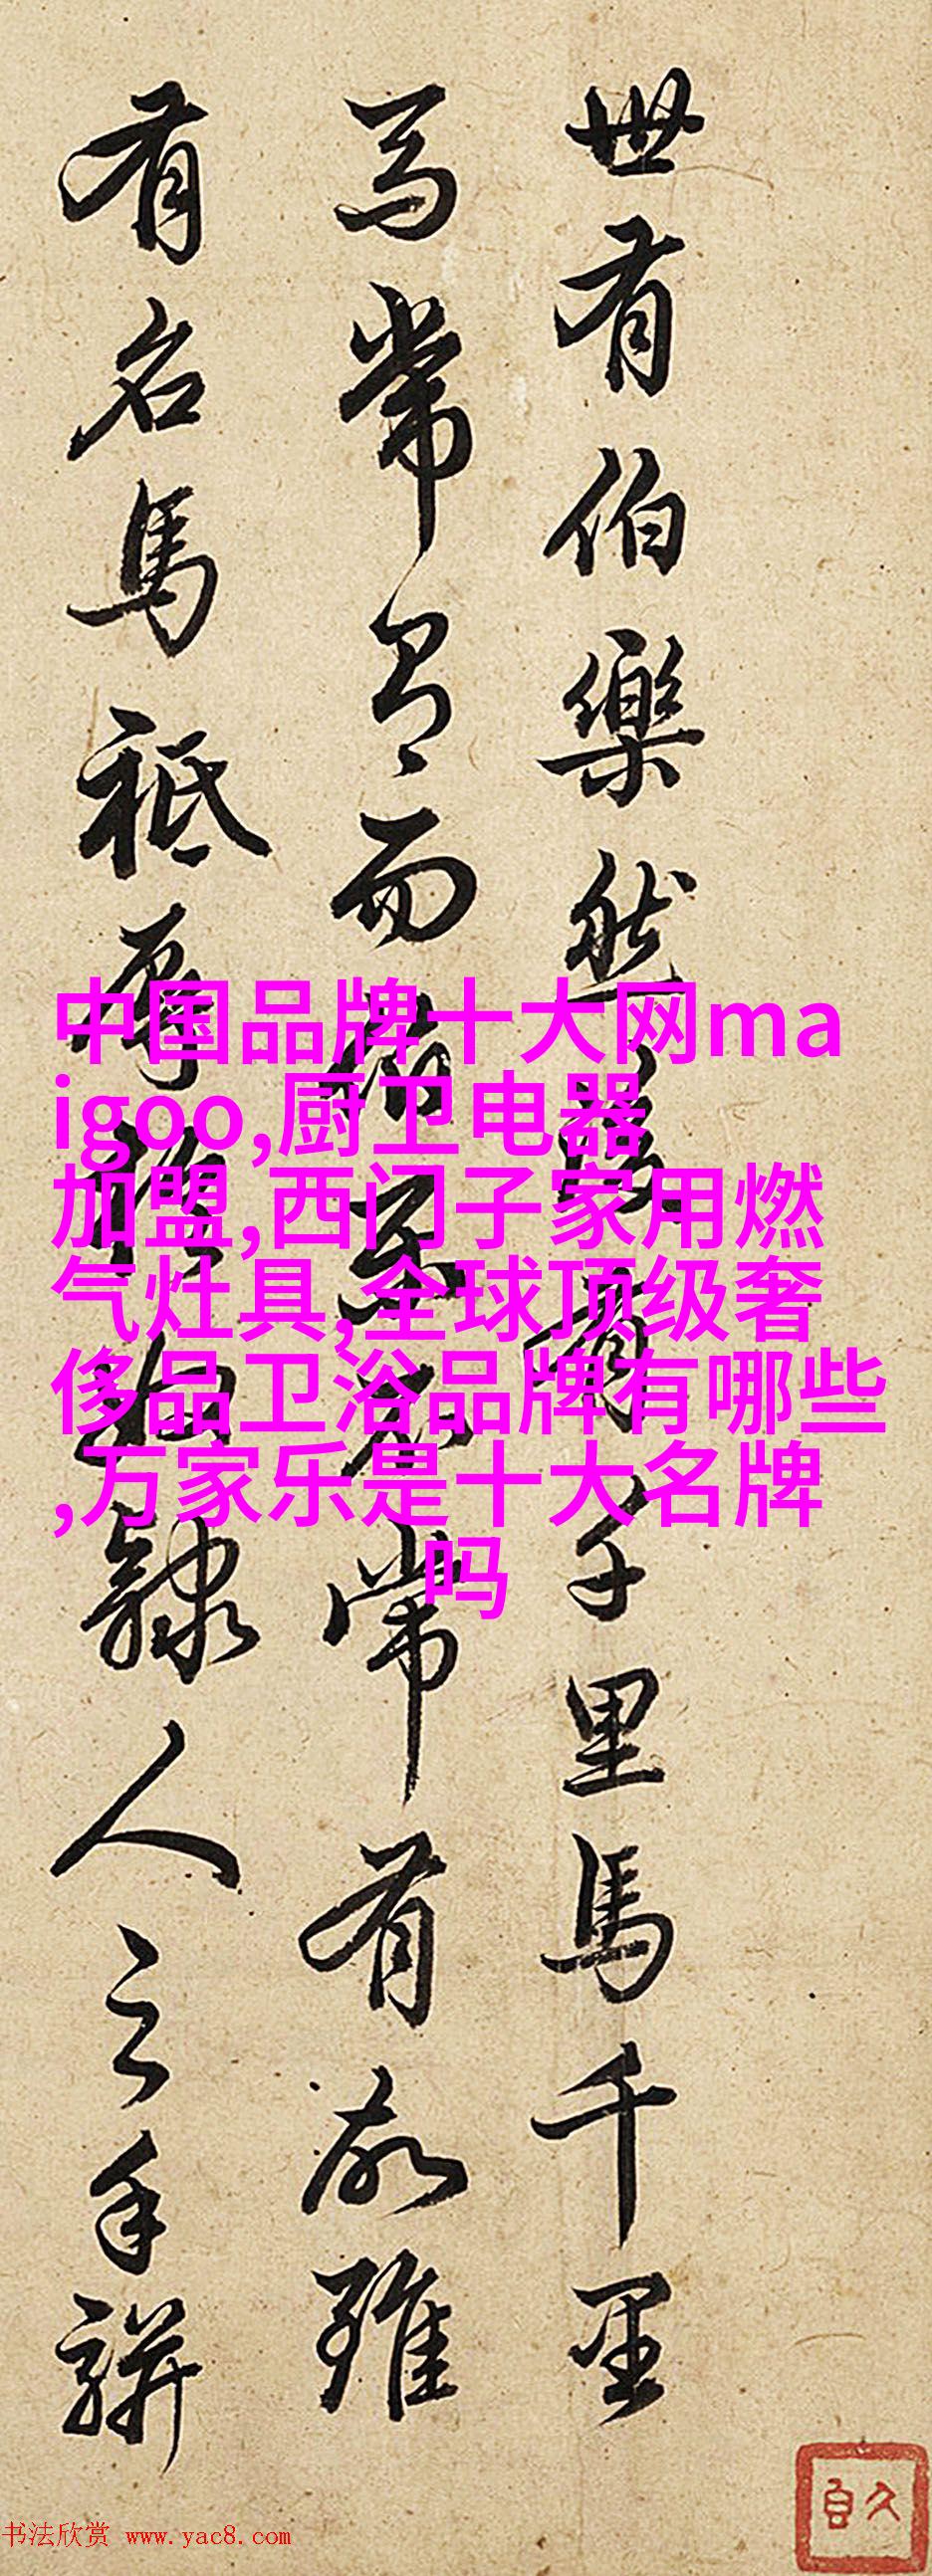 世有伯樂然後有千里馬千里
馬常有而伯樂不常有故雖
有名馬祇辱於奴隸人之手駢
中国品牌十大网ma
igoo,厨卫电器
加盟,西门子家用燃
气灶具,全球顶级奢
侈品卫浴品牌有哪些
,万家乐是十大名牌
吗
书法欣赏 www.yac8.com